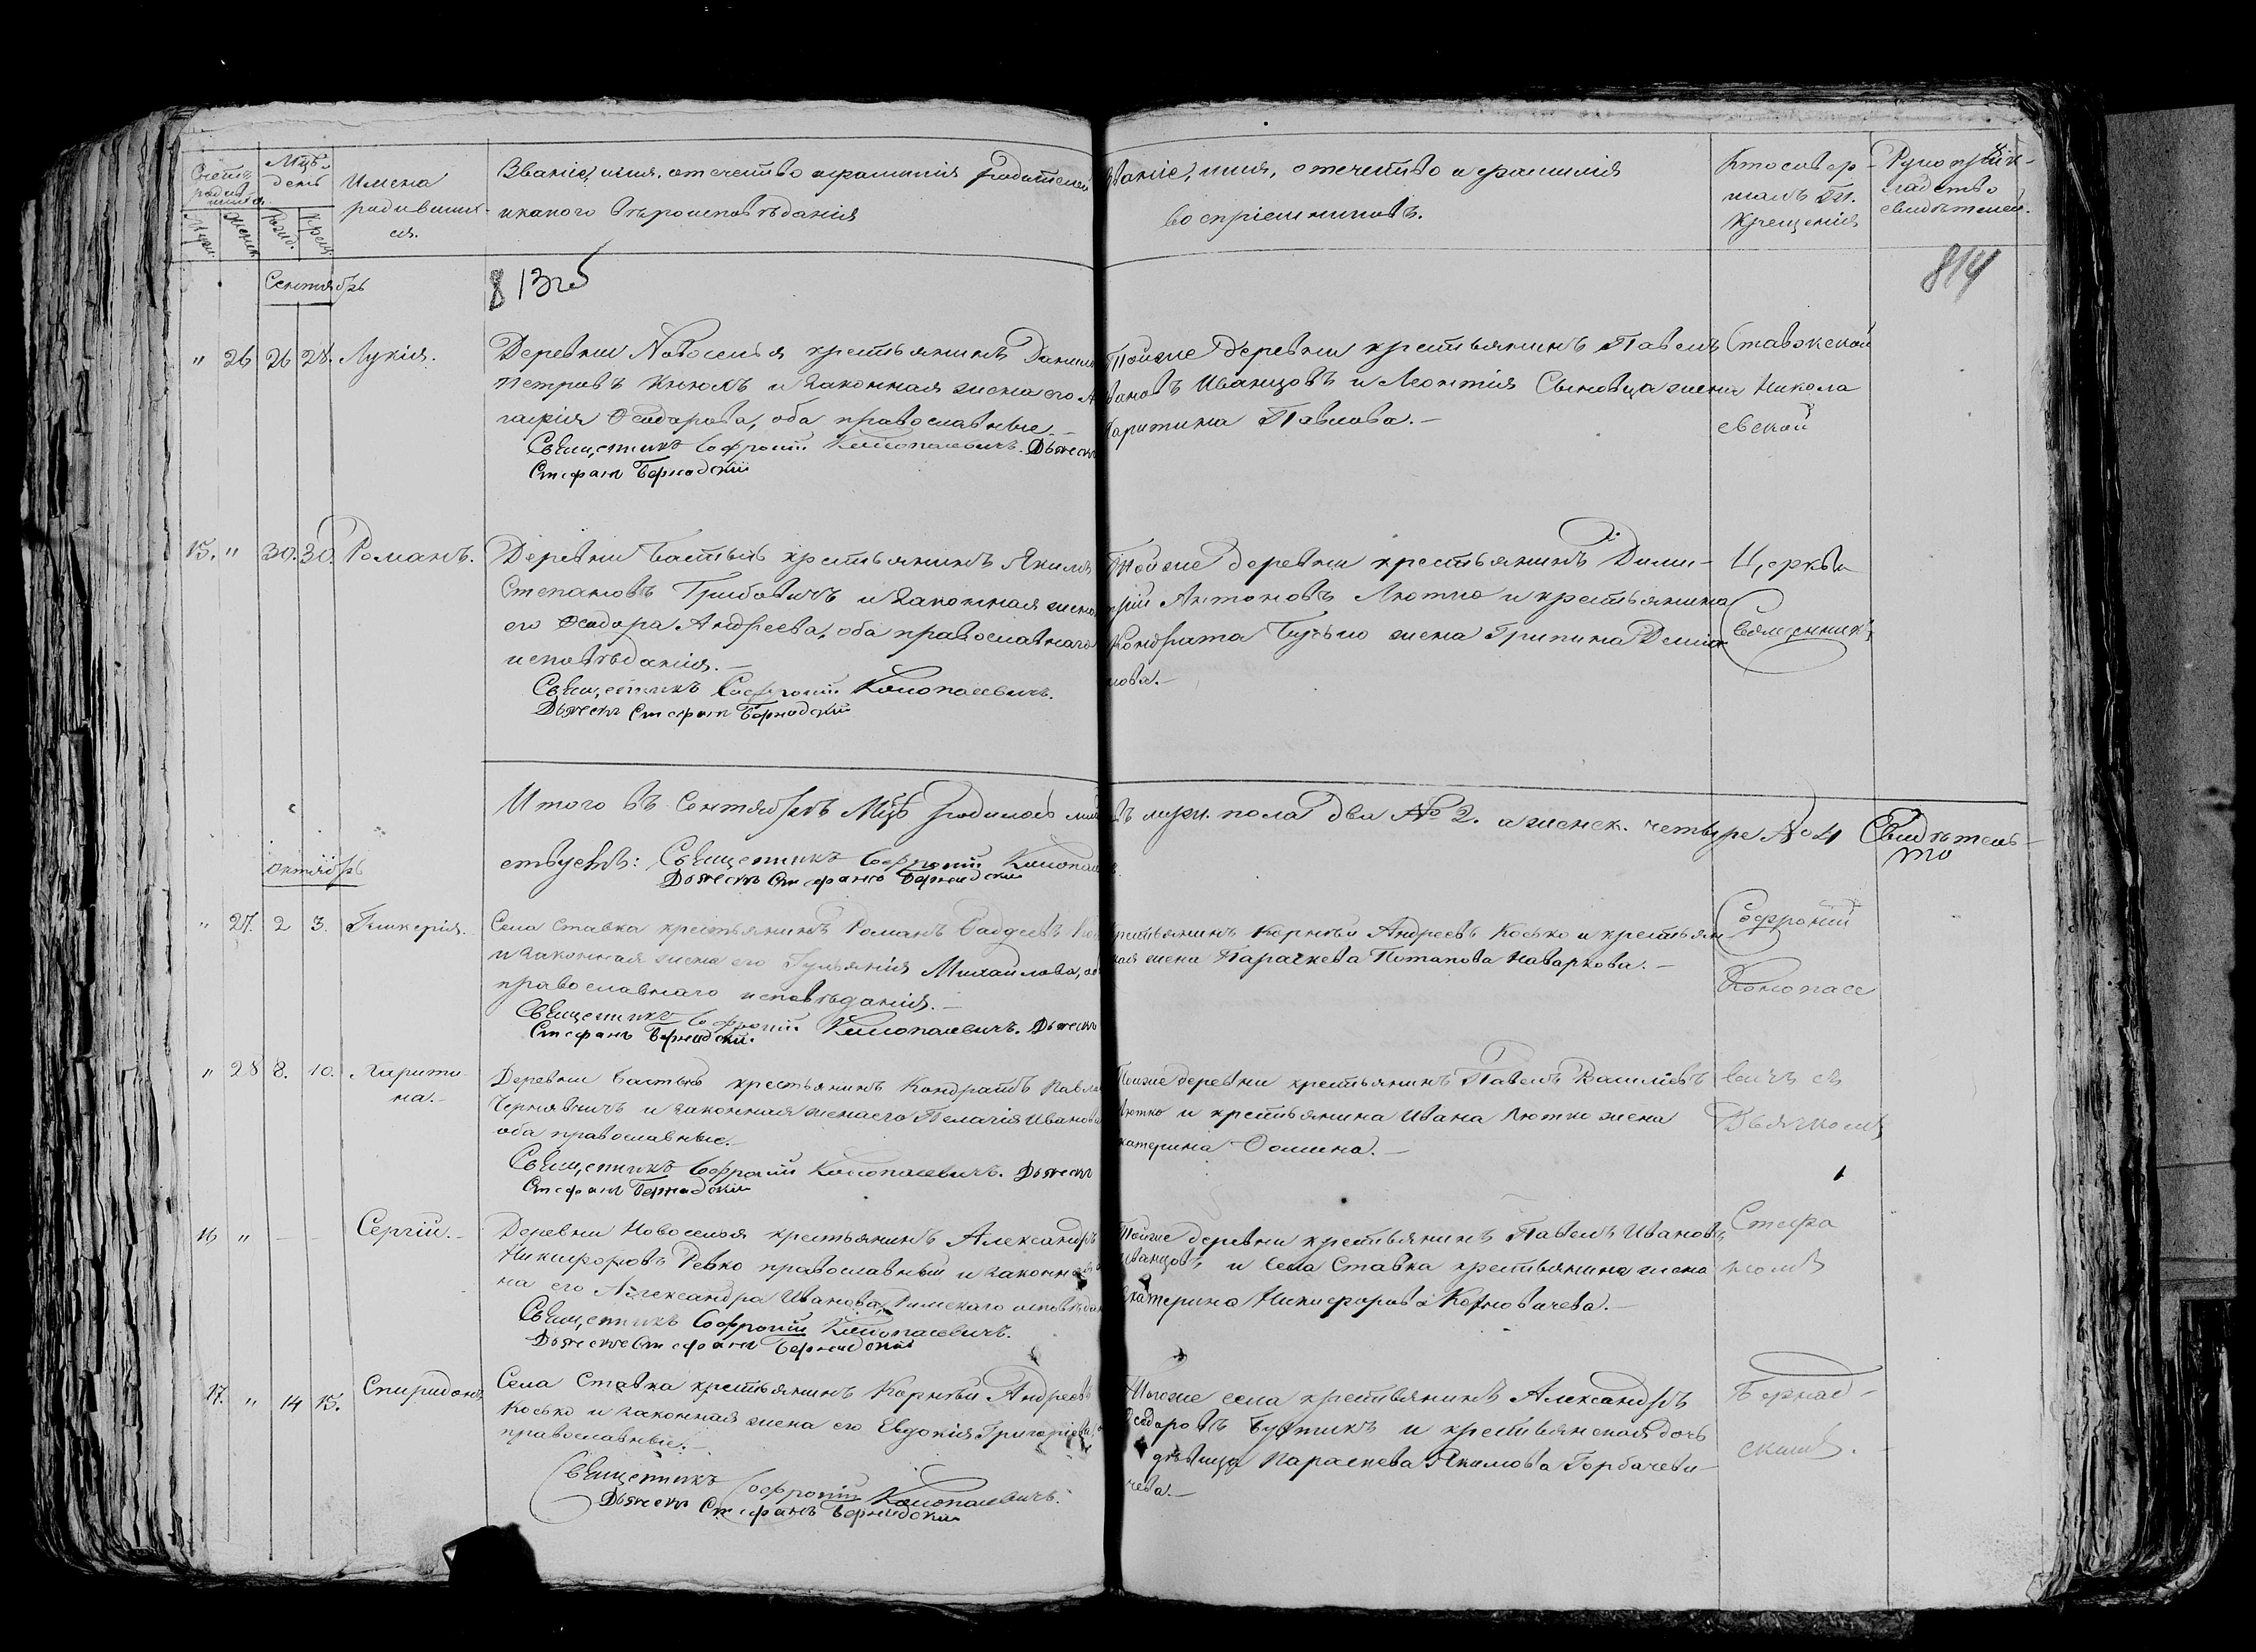 Счетъ родив
шихся
Муж. Женск
Мцъ и день
Рожд. Крещ.
Имена
родивших-
ся.
Званіе, имя, отечество и фамилія родителей
и какого вѣроисповѣданія
Званіе, имя, отечество и фамилія
воспріемниковъ.
Кто совер-
шалъ Т.
Крещенія
Рукоприк-
ладство
свидѣтелей.
Сентябрь
813 об
814
" 26 26 28. Лукія.
Деревни Новоселья крестьянинъ Даніилъ
Петровъ и законная жена его
Ѳеодорова, оба православные. —
Священникъ Софроній Конопасевичъ. Дьячекъ
Стефанъ Бернадскій
Тойже деревни крестьянинъ Павелъ
Иванцовъ и Леонтія жена
Харитина Павлова. —
Ставокской
Никола
евской
15. " 30. 30. Романъ.
Деревни Бастынь крестьянинъ Якимъ
Степановъ Грибовичъ и законная жена
его Ѳеодора Андреева, оба православнаго
исповѣданія. —
Священникъ Софроній Конопасевичъ.
Дьячекъ Стефанъ Бернадскій
Тойже деревни крестьянинъ Дими-
трій Антоновъ Лютко и крестьянина
Кондрата жена Грипина Демья
нова. —
Церкви
Священникъ
Итого въ Сентябрѣ Мцѣ родилось
муж. пола два № 2. а женск. четыре № 4 Свидѣтель-
ствуемъ: Священникъ Софроній Конопасевичъ
Дьячекъ Стефанъ Бернадскій
октябрь
" 27. 2 3. Гликерія.
Села Ставка крестьянинъ Романъ Фаддеевъ
и законная жена его Гульянія Михайлова,
православнаго исповѣданія. —
Священникъ Софроній Конопасевичъ. Дьячекъ
Стефанъ Бернадскій.
крестьянинъ Корнѣй Андреевъ Косько и крестьян
ская жена Параскева Потапова —
Софроній
Конопасе
" 28 8. 10. Харити-
на. —
Деревни Бастынь крестьянинъ Кондратъ Павловъ
Чернявичъ и законная жена его Пелагія Иванова
оба православные. —
Священникъ Софроній Конопасевичъ. Дьячекъ
Стефанъ Бернадскій
Тойже деревни крестьянинъ Павелъ Василіевъ
Лютко и крестьянина Ивана Лютко жена
Катерина Ѳомина. —
вичъ съ
Дьячкомъ
16 " — — Сергій. —
Деревни Новоселья крестьянинъ Александръ
Никифоровъ Ревко православный и законная
на его Александра Иванова, Римскаго исповѣдан
Священникъ Софроній Конопасевичъ.
Дьячекъ Стефанъ Бернадскій
Тойже деревни крестьянинъ Павелъ Ивановъ
Иванцовъ и села Ставка крестьянина жена
Екатерина Никифорова —
Стефа
номъ
17. " 14 15. Спиридонъ
Села Ставка крестьянинъ Корнѣй Андреевъ
Косько и законная жена его Евдокія Григоріева,
православные. —
Священникъ Софроній Конопасевичъ.
Дьячекъ Стефанъ Бернадскій
Тогоже села крестьянинъ Александръ
Ѳеодоровъ и крестьянская дочь
дѣвица Параскева Якимова Горбачеви-
чева. —
Бернад-
скимъ.